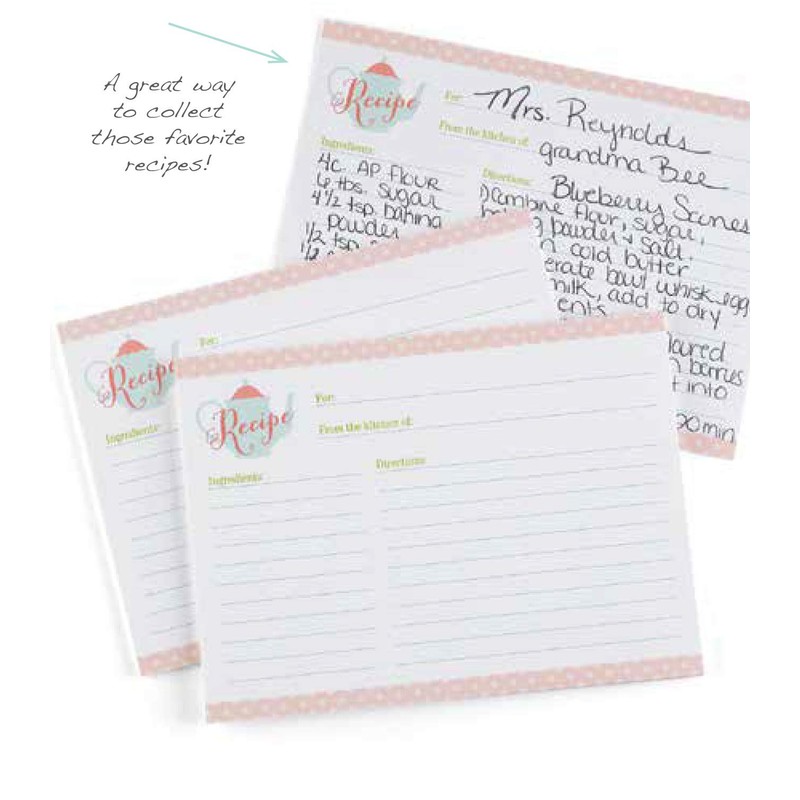 A great way
to collect
those favorite
recipes!
Recipe
For: Mrs. Reynolds
From the kitchen of: grandma Bee
Ingredients:
4c. AP flour
6 tbs. sugar
4 1/2 tsp. baking
powder
1/2 tsp.
1/2
Directions: Blueberry Scones
1) Combine flour, sugar,
powder + salt.
cold butter
bowl whisk egg
milk, add to dry
into
20 min.
Recipe
For:
Ingredients:
Recipe
For:
From the kitchen of:
Ingredients:
Directions: